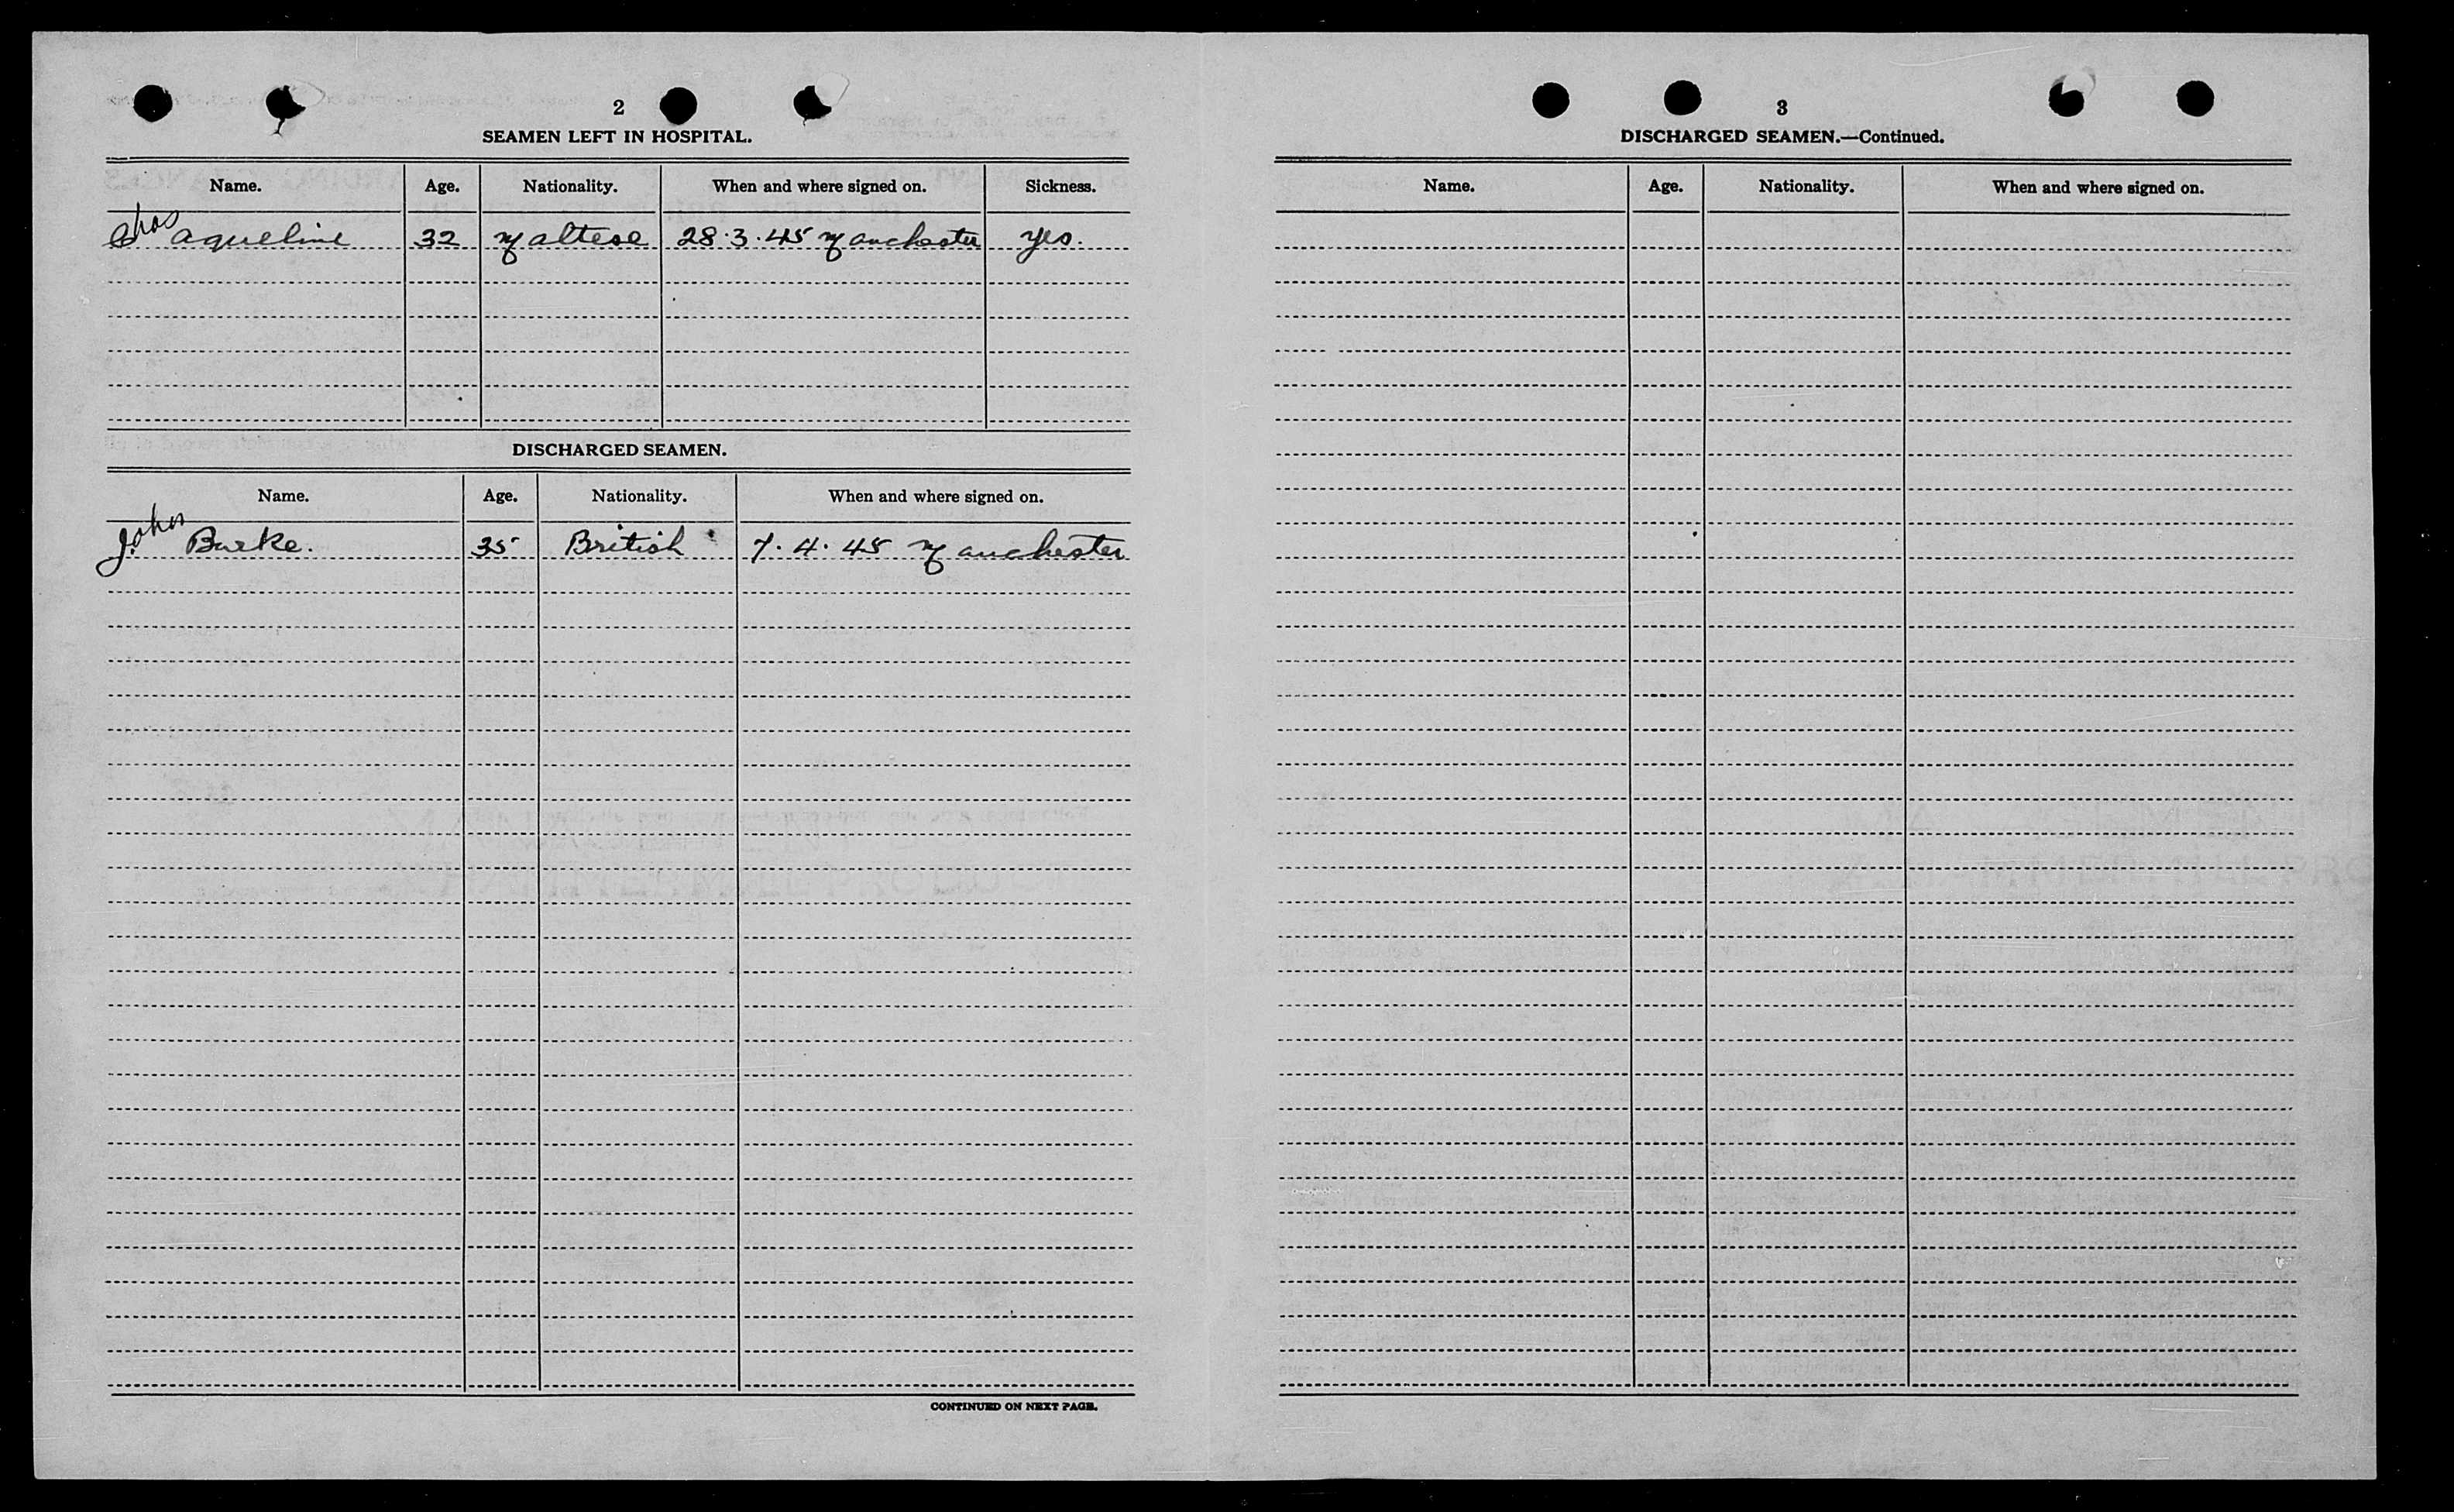 2
SEAMEN LEFT IN HOSPITAL.
Name. Age. Nationality. When and where signed on. Sickness.
Chas Aqueline 32 Maltese 28.3.45 Manchester yes.
DISCHARGED SEAMEN.
Name. Age. Nationality. When and where signed on.
John Burke. 35 British 7.4.45 Manchester
CONTINUED ON NEXT PAGE.
3
DISCHARGED SEAMEN.—Continued.
Name. Age. Nationality. When and where signed on.